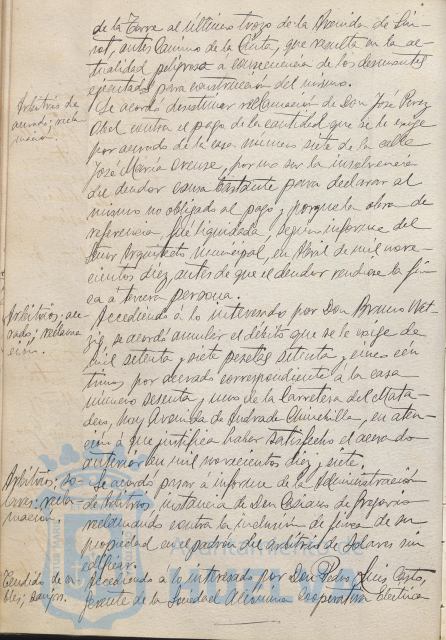 de la Torre al último trozo de la Avenida de
antes Camino de la Cinta, que resulta en la ac-
tualidad peligrosa a consecuencia de los desmontes
ejecutados para construcción del mismo.
Arbitrios de
acerado; recla-
mación.
Se acordó desestimar reclamación de Don José Perez
Abel contra el pago de la cantidad que se le exige
por acerado de la casa número siete de la calle
José María Orense, por no ser la insolvencia
del deudor causa bastante para declarar al
mismo no obligado al pago, y porque la obra de
referencia, fué liquidada, según informe del
Señor Arquitecto Municipal, en Abril de mil nove-
cientos diez, antes de que el deudor vendiese la fin-
ca a tercera persona.
Arbitrios; ace-
rado; reclama-
ción.
Accediendo á lo interesado por Don Bruno Wet-
zig, se acordó anular el débito que se le exige de
mil setenta y siete pesetas setenta y cinco cen-
timos por acerado correspondiente á la casa
número sesenta y uno de la Carretera del Mata-
dero, hoy Avenida de Andrade Chinchilla, en aten-
ción á que justifica haber satisfecho el acerado
anterior en mil novecientos diez y siete.
Arbitrios; so-
lares; recla-
mación.
Se acordó pasar á informe de la Administración
de Arbitrios instancia de Don Cesareo de Gregorio
reclamando contra la inclusión de finca de su
propiedad en el padrón del arbitrio de Solares sin
edificar.
Tendido de ca-
bles;
Accediendo a lo interesado por Don Pedro Luis Casto,
Gerente de la Sociedad Anónima Cooperativa Eléctrica